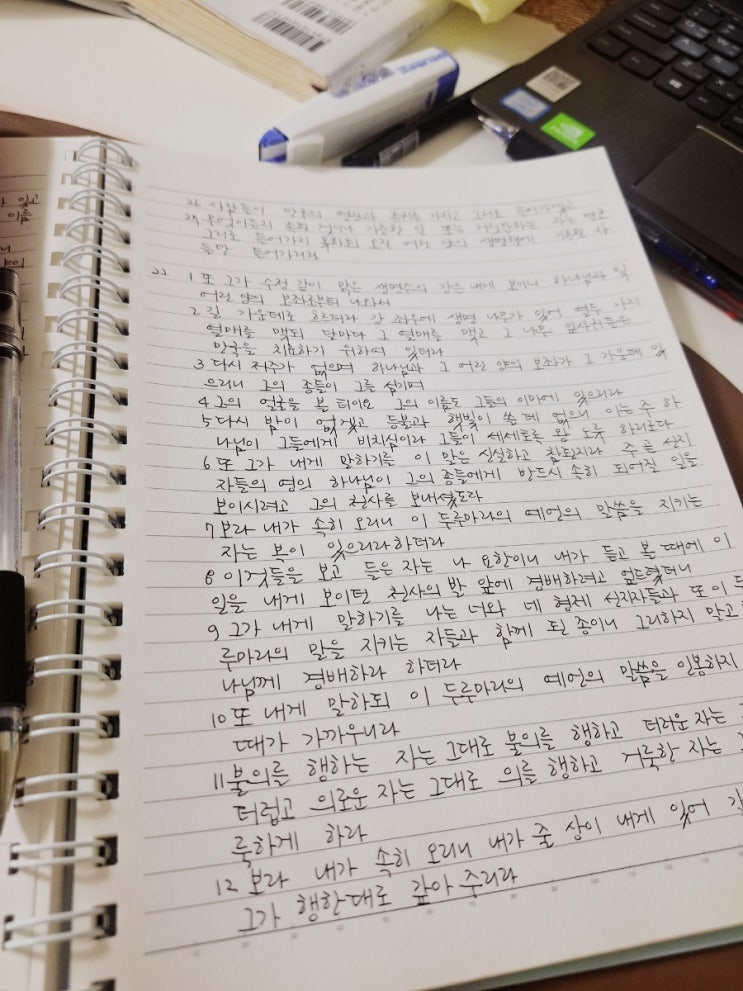 26 사람들이 만국의 영광과 존귀를 가지고 그리로 들어가겠고
27 무엇이든지 속된 것이나 가증한 일 또는 거짓말하는 자는 결코
그리로 들어가지 못하되 오직 어린 양의 생명책에 기록된 자
들만 들어가리라
22. 1 또 그가 수정 같이 맑은 생명수의 강을 내게 보이니 하나님과 및
어린 양의 보좌로부터 나와서
2 길 가운데로 흐르더라 강 좌우에 생명 나무가 있어 열두 가지
열매를 맺되 달마다 그 열매를 맺고 그 나무 잎사귀들은
만국을 치료하기 위하여 있더라
3 다시 저주가 없으며 하나님과 그 어린 양의 보좌가 그 가운데 있
으리니 그의 종들이 그를 섬기며
4 그의 얼굴을 볼 터이요 그의 이름도 그들의 이마에 있으리라
5 다시 밤이 없겠고 등불과 햇빛이 쓸 데 없으니 이는 주 하
나님이 그들에게 비치심이라 그들이 세세토록 왕 노릇 하리로다
6 또 그가 내게 말하기를 이 말은 신실하고 참된지라 주 곧 선지
자들의 영의 하나님이 그의 종들에게 반드시 속히 되어질 일을
보이시려고 그의 천사를 보내셨도다
7 보라 내가 속히 오리니 이 두루마리의 예언의 말씀을 지키는
자는 복이 있으리라 하더라
8 이것들을 보고 들은 자는 나 요한이니 내가 듣고 볼 때에 이
일을 내게 보이던 천사의 발 앞에 경배하려고 엎드렸더니
9 그가 내게 말하기를 나는 너와 네 형제 선지자들과 또 이 두
루마리의 말을 지키는 자들과 함께 된 종이니 그리하지 말고
나님께 경배하라 하더라
10 또 내게 말하되 이 두루마리의 예언의 말씀을 인봉하지
때가 가까우니라
11 불의를 행하는 자는 그대로 불의를 행하고 더러운 자는
더럽고 의로운 자는 그대로 의를 행하고 거룩한 자는
룩하게 하라
12 보라 내가 속히 오리니 내가 줄 상이 내게 있어
그가 행한대로 갚아 주리라